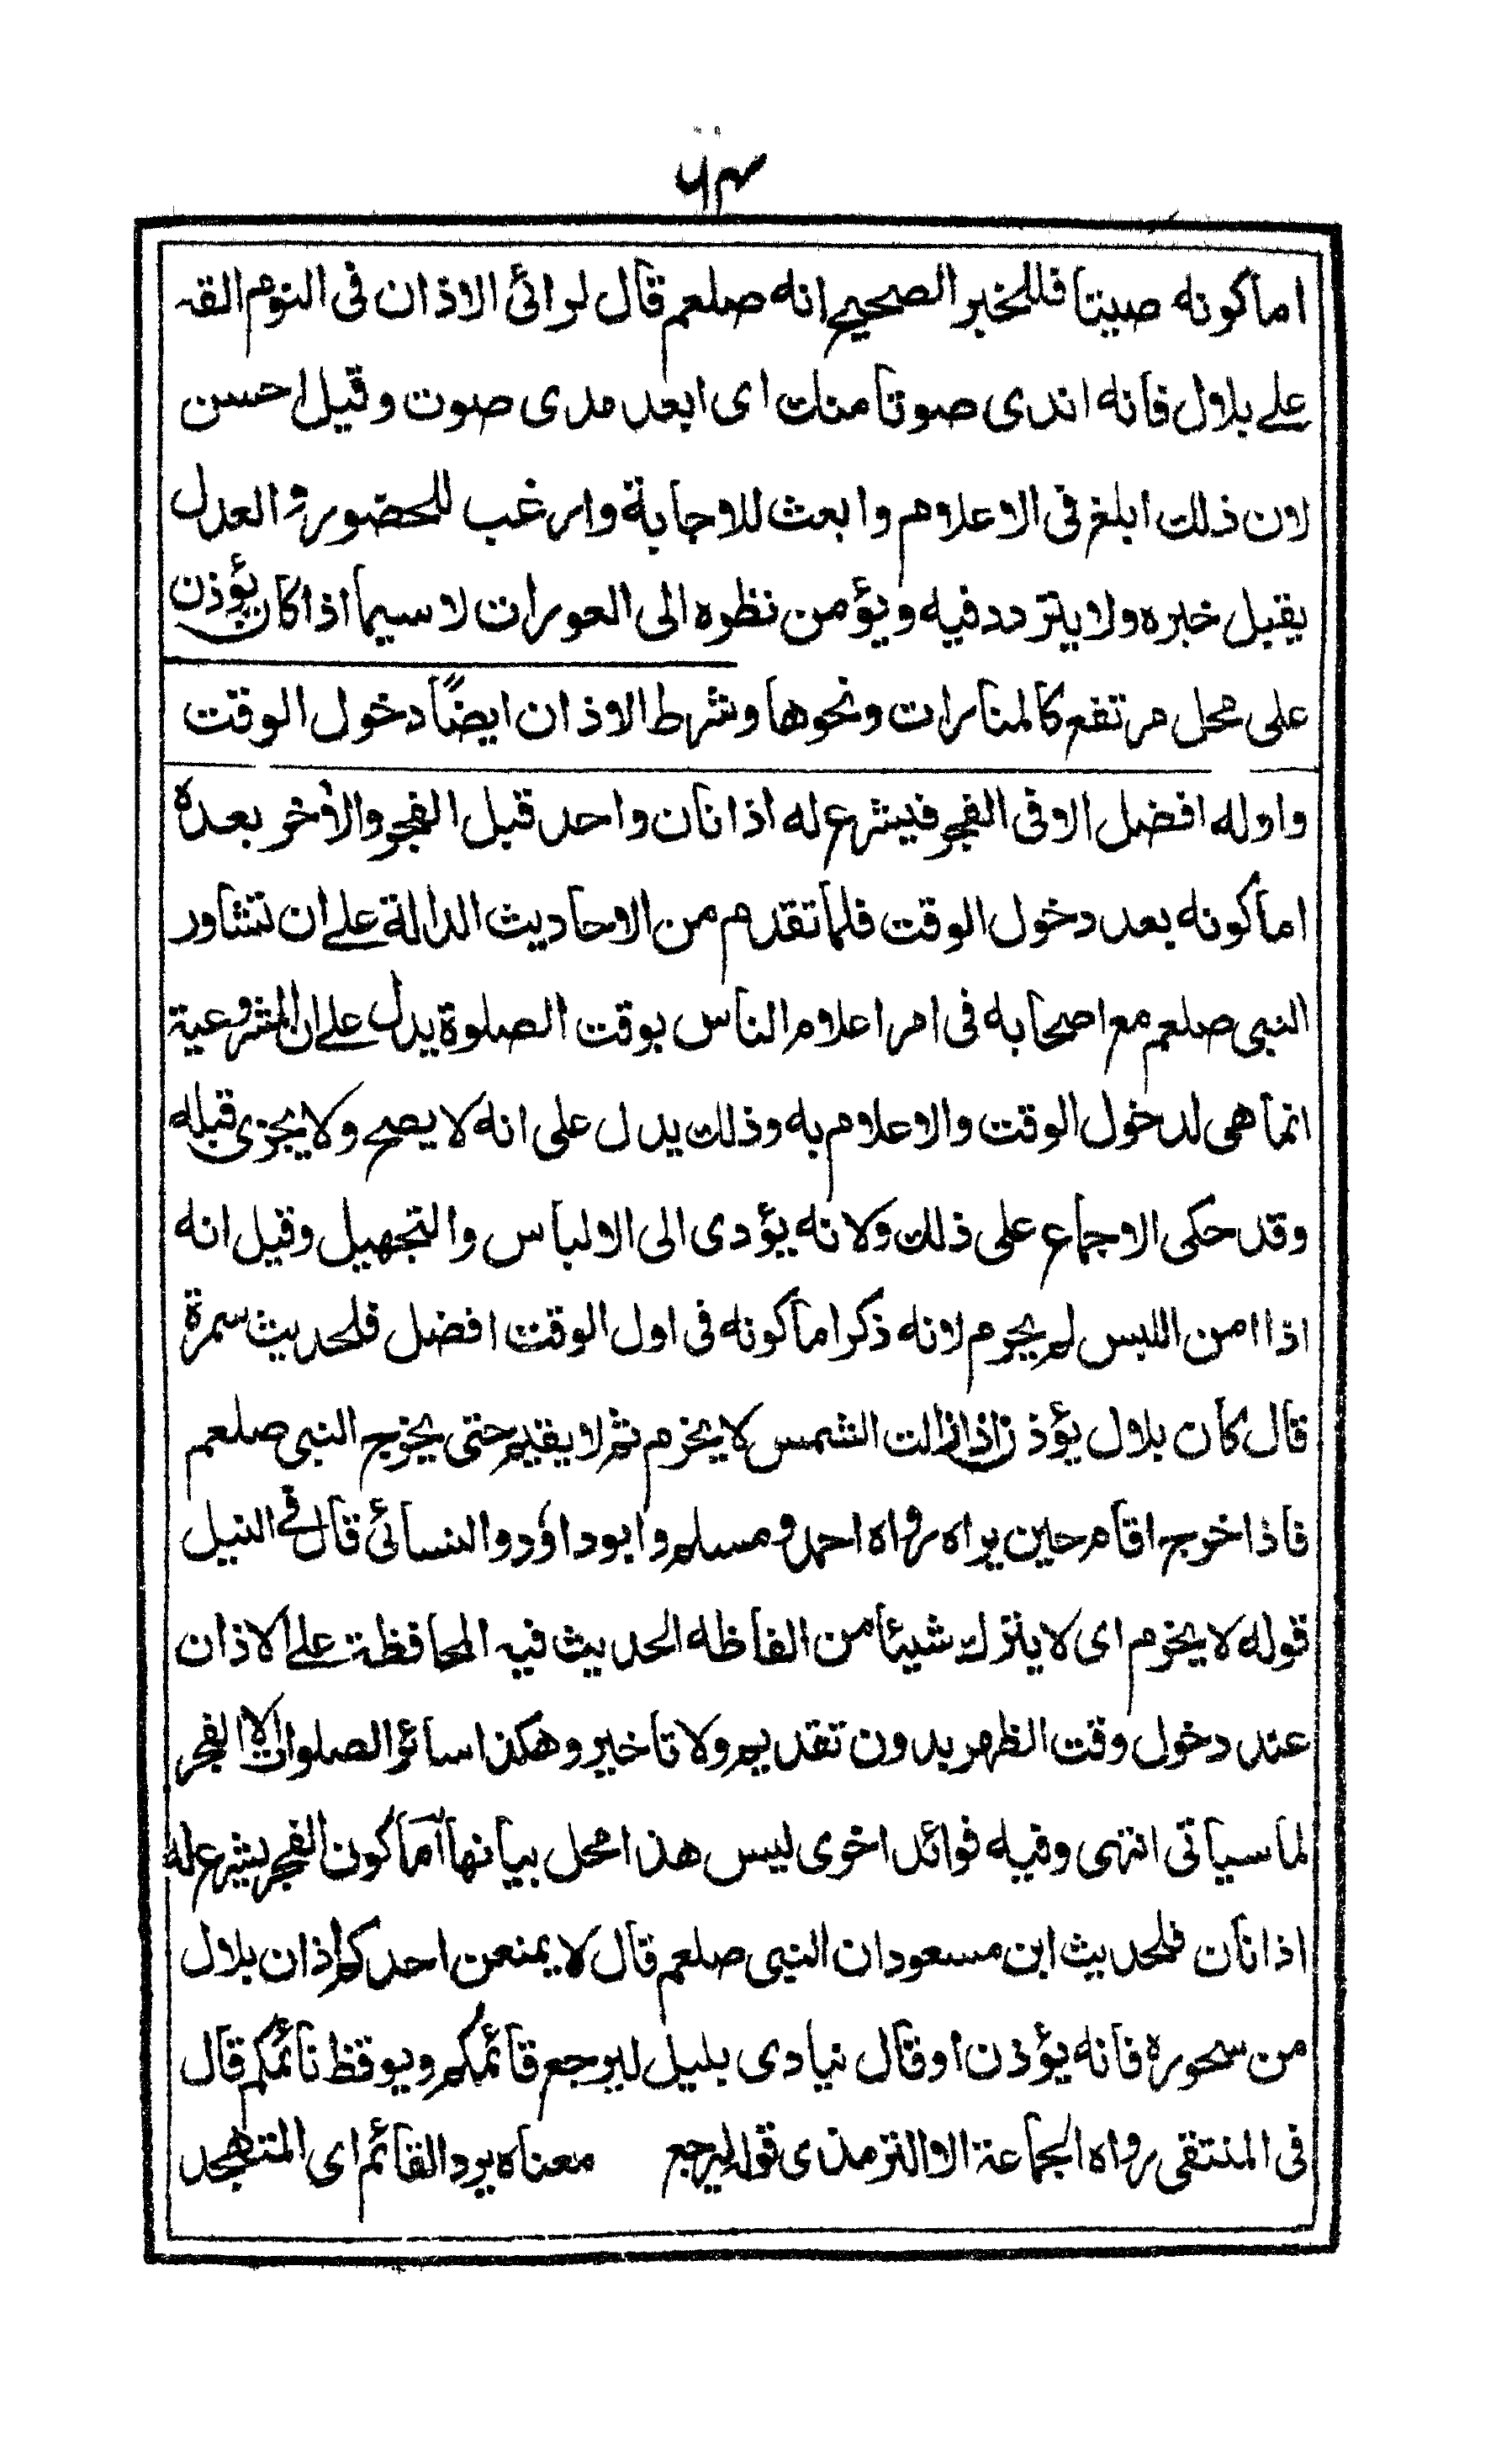 ٦٣
اما كونه صيتا فللخبر الصحيح انه صلعم قال لرائى الاذان فى النوم القه
علے بلال فانه اندى صوتا منك اى ابعد مدى صوت وقيل احسن
لان ذلك ابلغ فى الاعلام وابعث للاجابة وارغب للحضور والعدل
يقبل خبره ولا يتردد فيه ويؤمن نظره الى العورات لا سيما اذا كان يؤذن
على محل مرتفع كالمنارات ونحوها وشرط الاذان ايضًا دخول الوقت
واوله افضل الا فى الفجر فيشرع له اذانان واحد قبل الفجر والأخر بعده
اما كونه بعد دخول الوقت فلما تقدم من الاحاديث الدالة علے ان تشاور
النبى صلعم مع اصحابه فى امر اعلام الناس بوقت الصلوة يدل علے ان المشروعية
انما هى لدخول الوقت والاعلام به وذلك يدل على انه لا يصح ولا يجزى قبله
وقد حكى الاجماع على ذلك ولانه يؤدى الى الالباس والتجهيل وقيل انه
اذا امن اللبس لم يحرم لانه ذكر اما كونه فى اول الوقت افضل فلحديث سمرة
قال كان بلال يؤذن اذا زالت الشمس لا يخرم ثم لا يقيم حتى يخرج النبى صلعم
فاذا خرج اقام حين يراه رواه احمد ومسلم وابوداؤد والنسائى قال فے النيل
قوله لا يخرم اى لا يترك شيئا من الفاظه الحديث فيه المحافظة علے الاذان
عند دخول وقت الظهر بدون تقديم ولا تاخير وهكذا سائر الصلوات الا الفجر
لما سياتى انتهى وفيه فوائد اخرى ليس هذا محل بيانها أما كون الفجر يشرع له
اذانان فلحديث ابن مسعود ان النبى صلعم قال لا يمنعن احدكم اذان بلال
من سحوره فانه يؤذن أو قال ينادى بليل ليرجع قائمكم ويوقظ نائمكم قال
فى المنتقى رواه الجماعة الا الترمذى قوله ليرجع معناه يرد القائم اى المتهجد